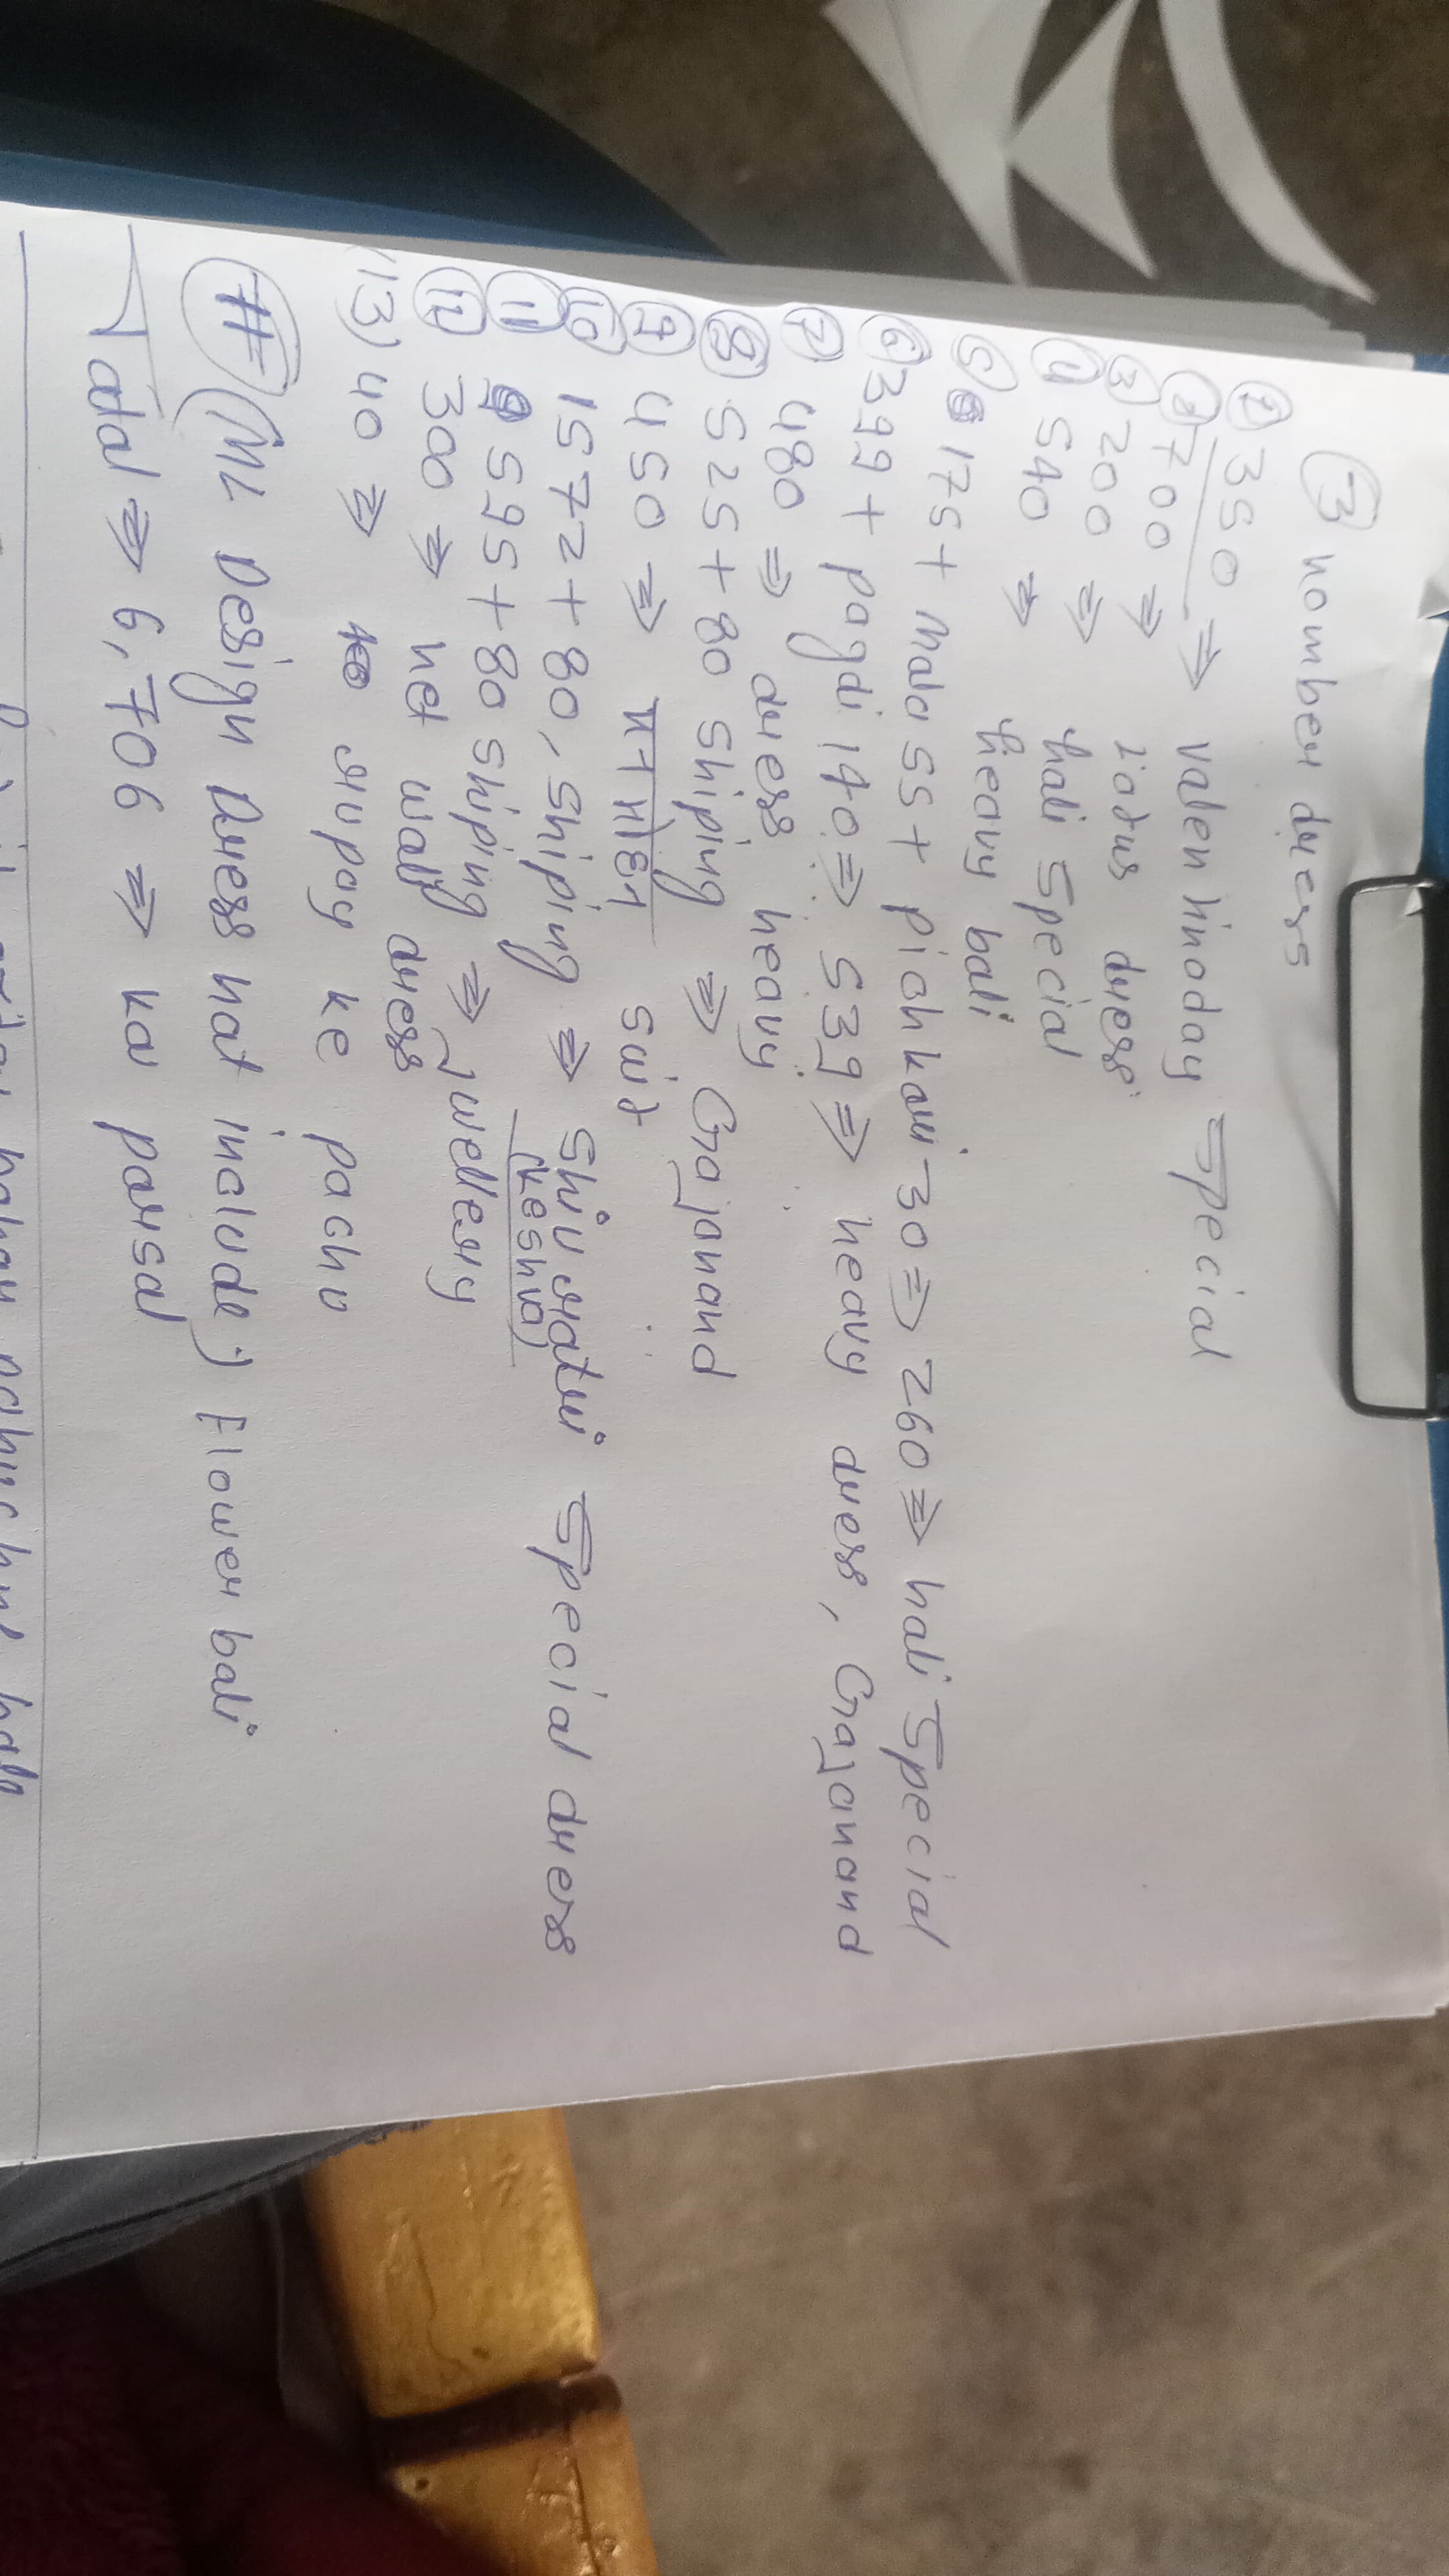 ③ nomber dress
① 350 ⇒ valentinoday Special
② 700 ⇒ lotus dress
③ 200 ⇒ holi Special
④ 540 ⇒ heavy holi
⑤ 175 + mala 55 + pichkari 30 ⇒ 260 ⇒ holi Special
⑥ 399 + pagdi 140 ⇒ 539 ⇒ heavy dress, Gajanand
⑦ 480 ⇒ dress heavy
⑧ 525 + 80 shiping ⇒ Gajanand
⑨ 450 ⇒ मनमोहन suit
⑩ 1572 + 80, shiping ⇒ Shivratri Special dress
(keshva)
⑪ 595 + 80 shiping ⇒ Jwellery
⑫ 300 ⇒ net wali dress
(13) 40 ⇒ rupay ke pacho
# (ML Design Dress not include) Flower bali
Total ⇒ 6,706 ⇒ ka parsal